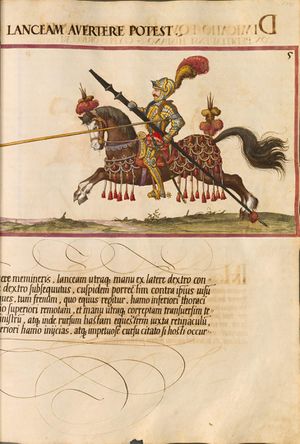 LANCEAM AVERTERE POTEST.
5
ere memineris, lanceam utraq; manu ex latere dextro con
dextro subsequutus, cuspidem porrectim contra ipsius usu
ques, tum frenum, quo equus regitur, hamo inferiori thoraci
o superiori remotam, et manu utraq; correptam transversim te
inistru, atq; inde rursum hastam equestrem iuxta retinaculũ,
eriori hamo inijcias, atq; impetuose cursu citato si hosti occur